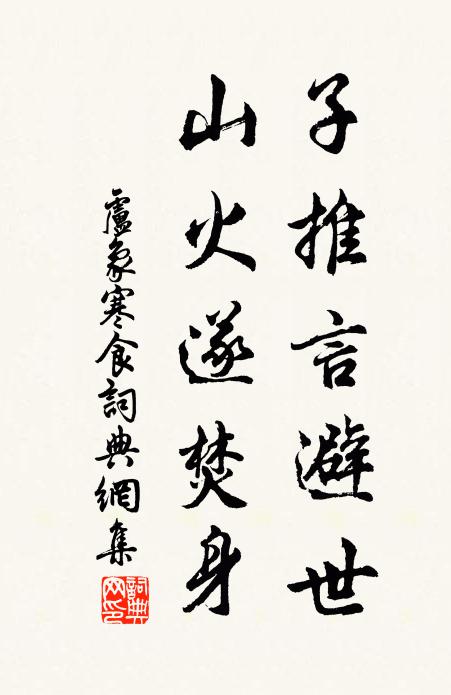 子推言避世
山火遂焚身
盧象寒食詞典網集
詞典網印